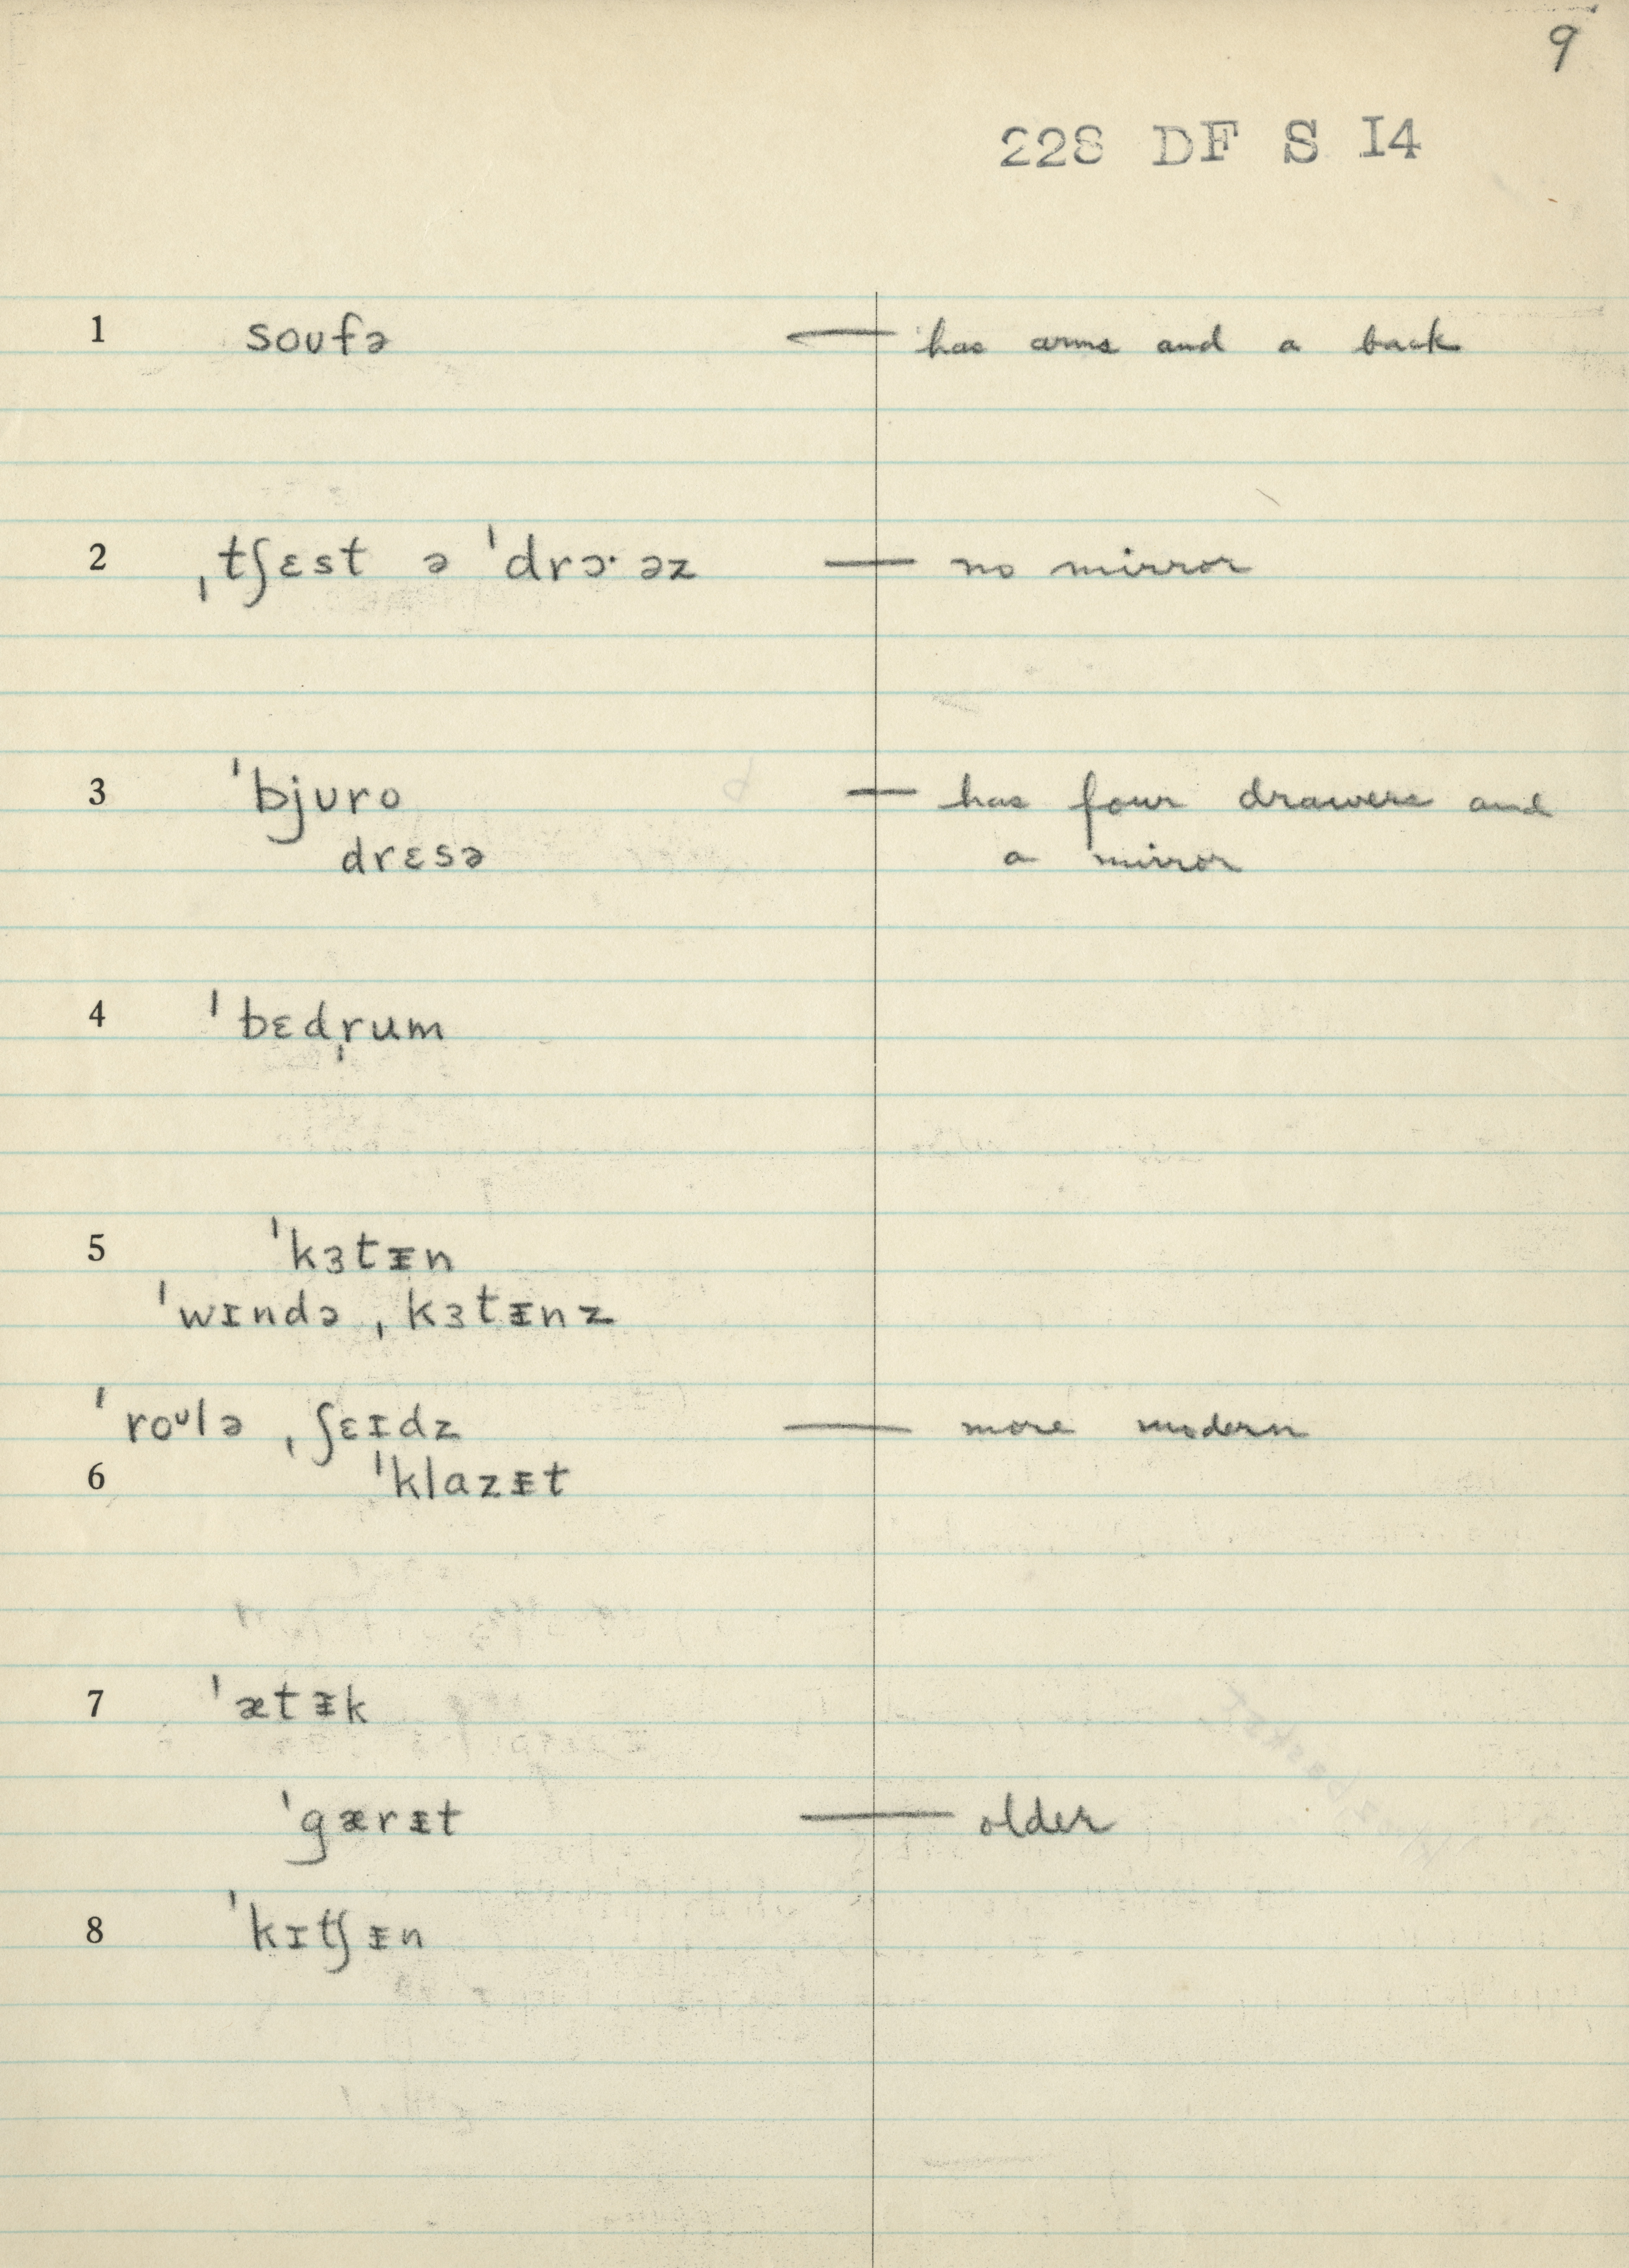 9
228 DF S I4
1 soufə — has arms and a back
2 ˌtʃɛst ə ˈdrɔ· əz — no mirror
3 ˈbjʊro — has four drawers and
drɛsə a mirror
4 ˈbɛdˌrum
5 ˈkɜtᵻn
ˈwɪndə ˌkɜtᵻnz
ˈroᶷlə ˌʃɛɪdz — more modern
6 ˈklazᵻt
7 ˈætᵻk
ˈgærᵻt — older
8 ˈkɪtʃᵻn